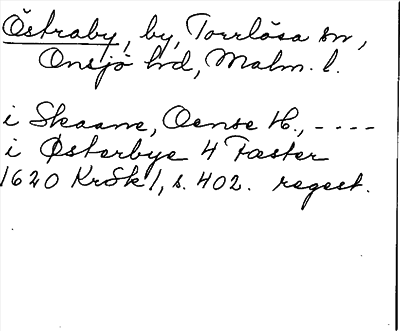 Östraby, by, Torrlösa sn,
Onsjö hd, Malm. l.
i Skaane, Oense H., - - - -
i Østerbye 4 Fæster
1620 KrSk 1, s. 402. regest.